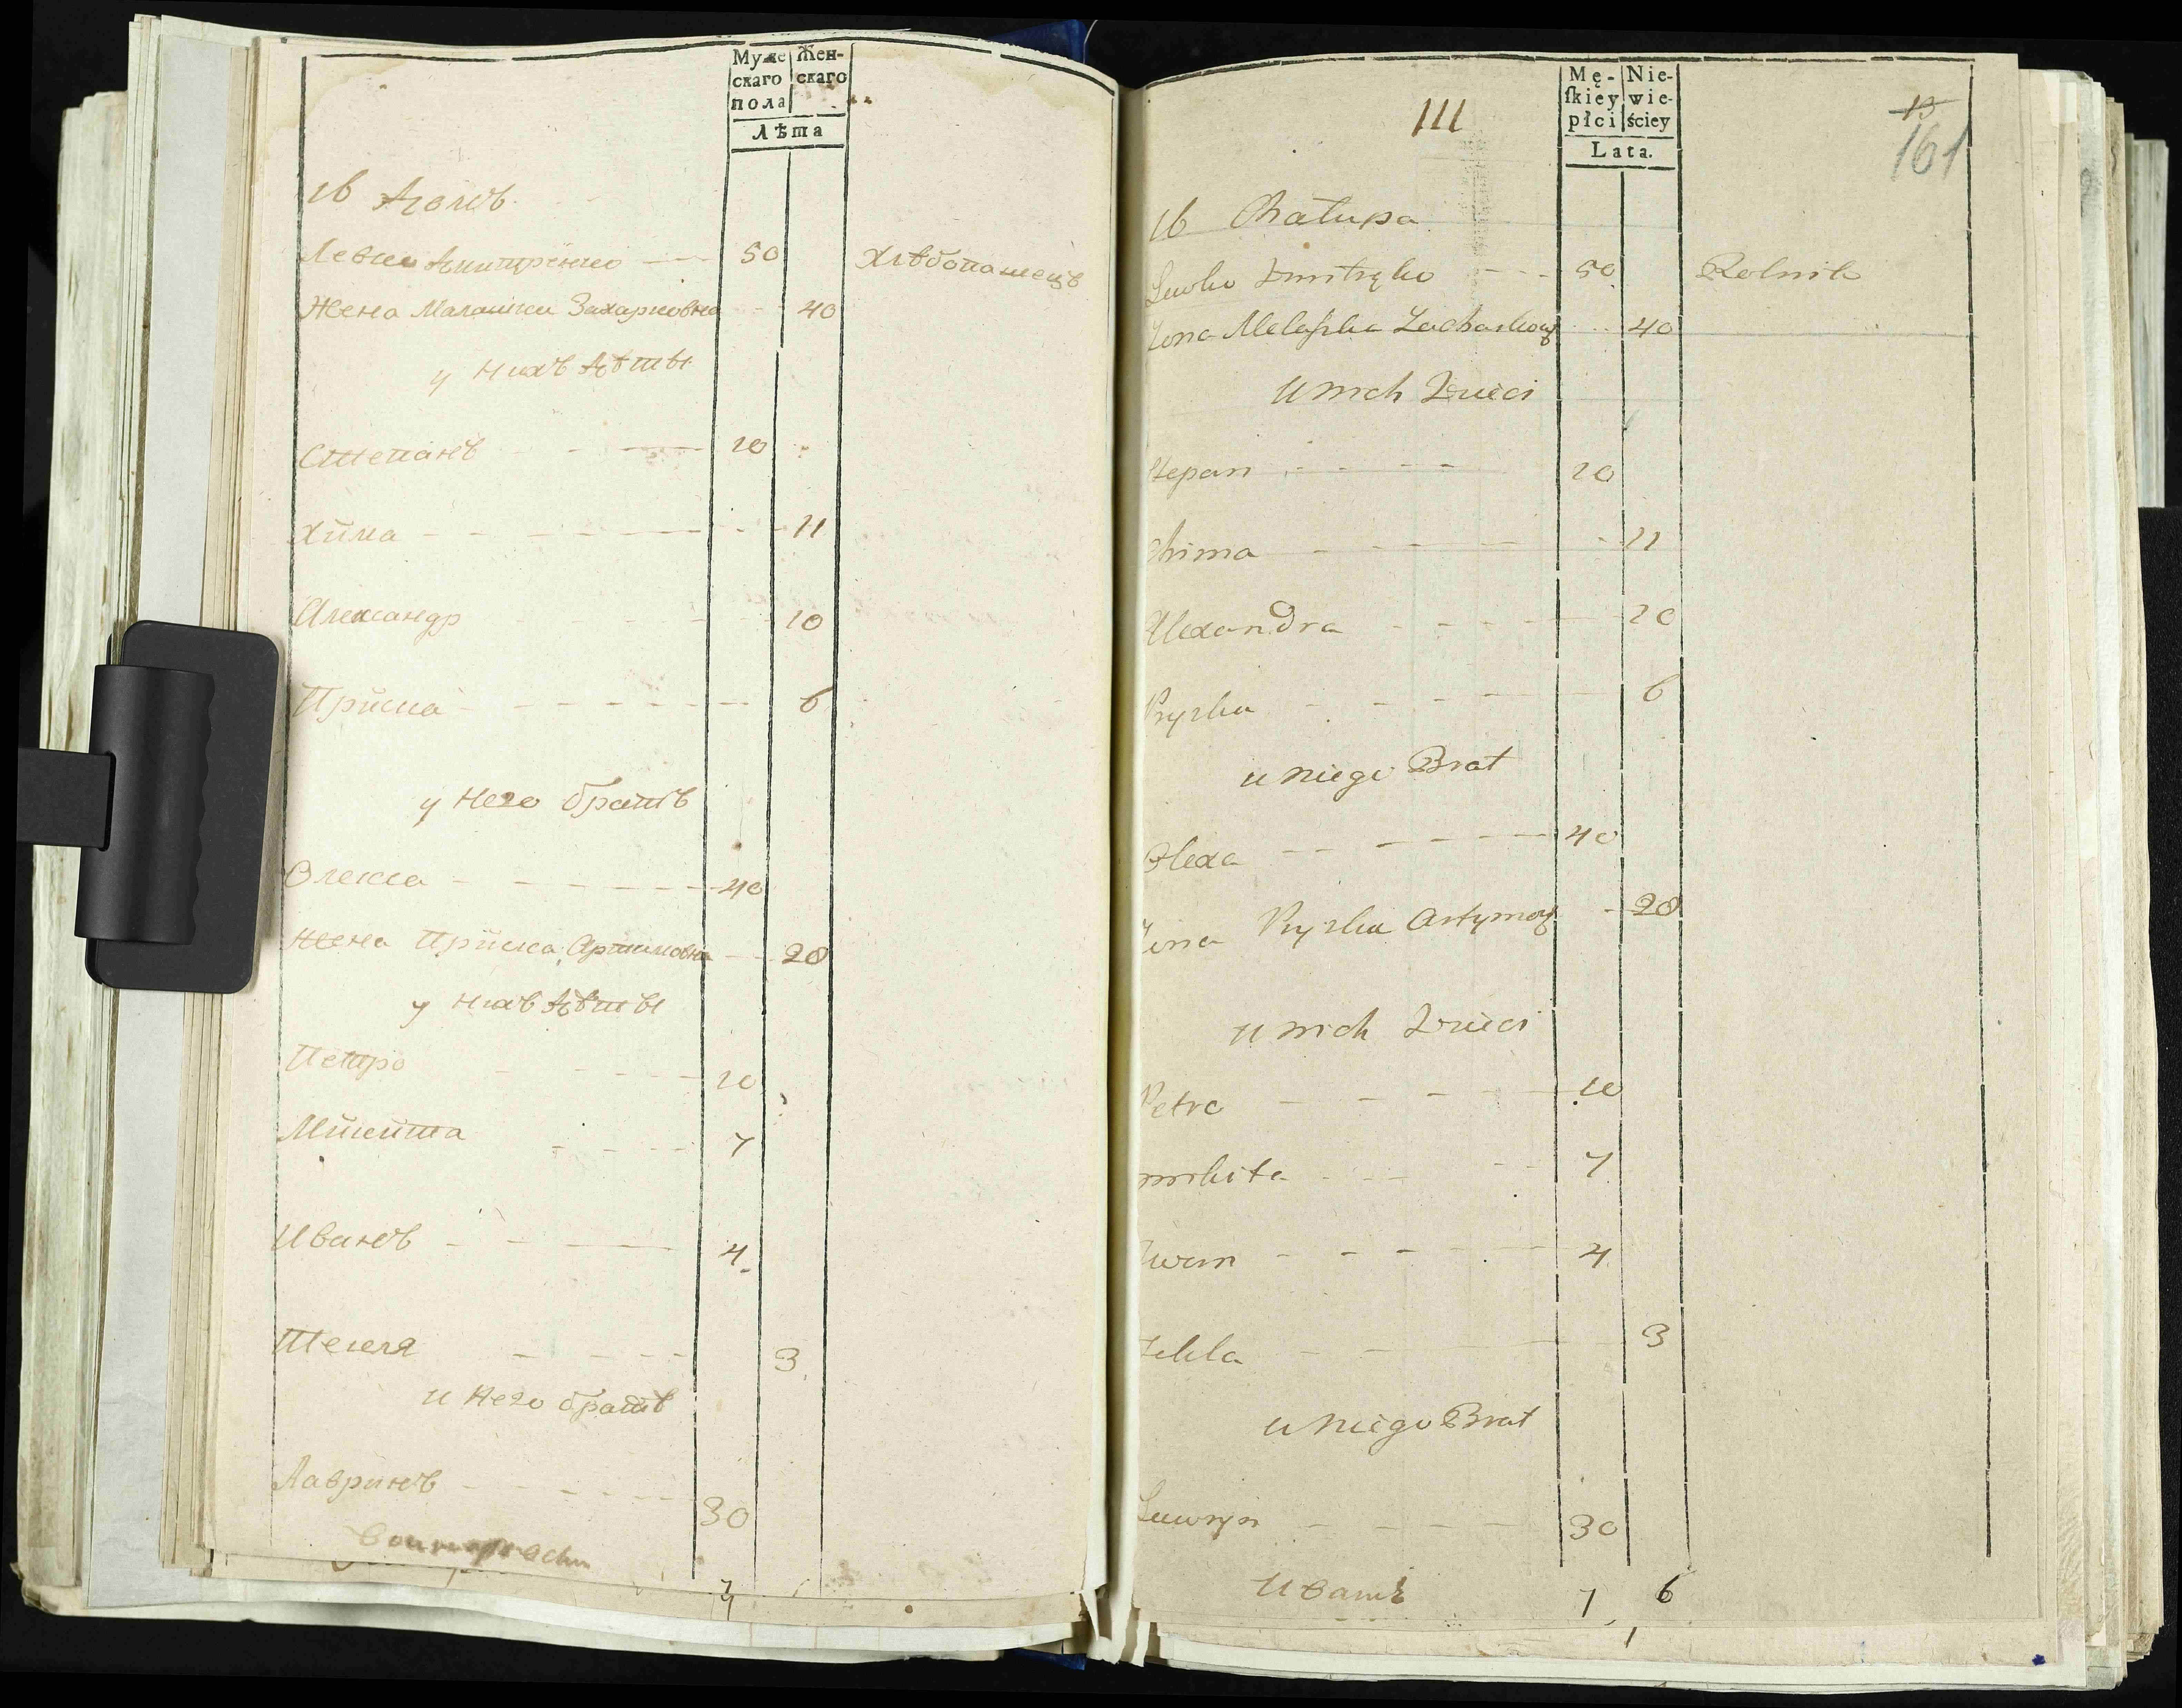 Муже Жен-
скаго скаго
пола
Лѣта
16 Домъ
Левко Дмитренко — 50 Хлѣбопашецъ
Жена Малашка Захарковна - - 40
у нихъ Дѣты
Степанъ - — 20
Хима - - - - — - - 11
Александр - - - 10
Приска - - - - - - - 6
у Него братъ
Олекса - - - - - - 40
Жена Приска Артимовна - - 28
у нихъ Дѣты
Петро - - - - - 10
Микита - - - - 7
Иванъ - - — 4
Текля - - - - 3
и Него братъ
Лавринъ - - - - - 30
7
III
Mę- Nie-
ſkiey wie-
płci ściey
Lata.
13
161
16 Chałupa
Lewko Dmitręko - - - 50 Rolnik
Żona Melaſzka Zacharkowa - - 40
U nich Dzieci
Stepan - - - - - 20
Chima - - - - - 11
Alexandra - - - - - 10
Pryska - - - - - - 6
u niego Brat
Olexa - - - - - 40
Żona Pryska Artymowa - 28
u nich Dzieci
Petro - - - - - 10
Mikita - - - - - 7
Iwan - - - - - - 4
Tekla - - - - - 3
u niego Brat
Lawryn - - - - 30
Иванъ 7 6